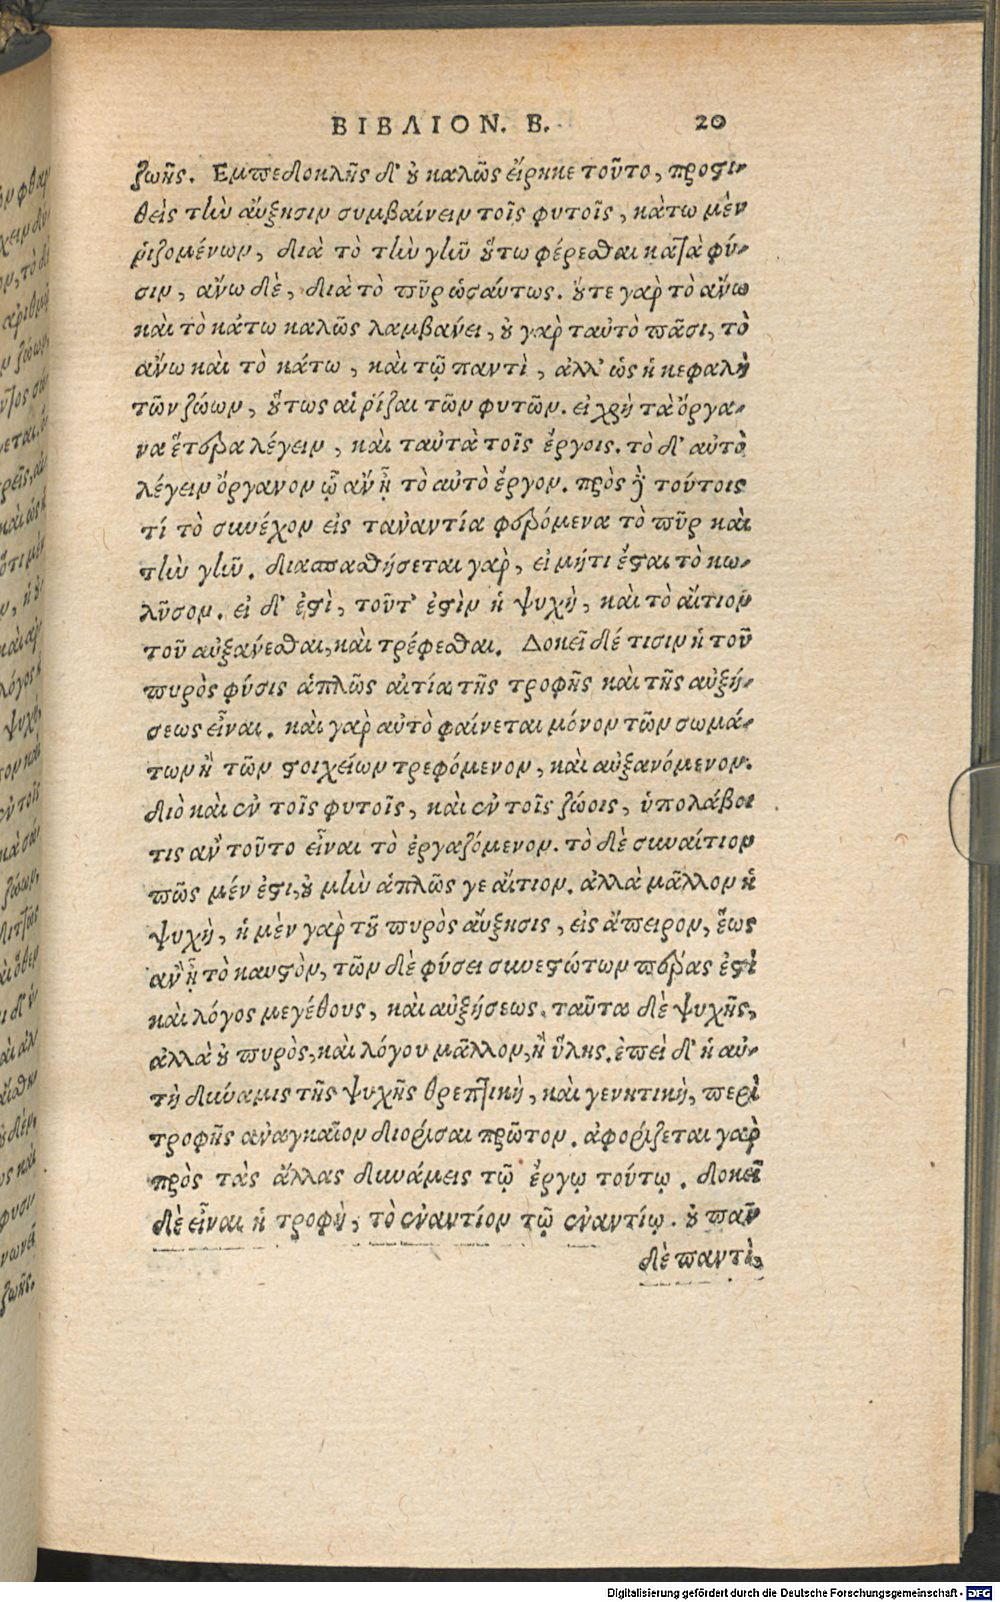 ΒΙΒΛΙΟΝ. Β. 20
ζωῆς. Εμπεδοκλῆς δ' ȣ καλῶς εἴρηκε τοῦτο, προςι-
θεὶς τὴν αὔξησιν συμβαίνειν τοῖς φυτοῖς, κάτω μὲν
ῥιζομένων, διὰ τὸ τὴν γῆν ȣ̔́τω φέρεσθαι κατὰ φύ-
σιν, ἄνω δὲ, διὰ τὸ πῦρ ὡσαύτως. ȣ̓́τε γαρ τὸ ἄνω
καὶ τὸ κάτω καλῶς λαμβάνει, ȣ̓ γαρ ταὐτὸ πᾶσι, τὸ
ἄνω καὶ τὸ κάτω, καὶ τῷ παντὶ, ἀλλ' ὡς ἡ κεφαλὴ
τῶν ζώων, ȣ̔́τως αἱ ῥίζαι τῶν φυτῶν. εἰ χρὴ τὰ ὄργα-
να ἕτερα λέγειν, καὶ ταὐτὰ τοῖς ἔργοις. τὸ δ' αὐτὸ
λέγειν ὄργανον ᾧ ἂν ᾖ τὸ αὐτὸ ἔργον. πρὸς δὲ τούτοις
τί τὸ συνέχον εἰς τἀναντία φερόμενα τὸ πῦρ καὶ
τὴν γῆν. διασπασθήσεται γαρ, εἰ μήτι ἔςαι τὸ κω-
λῦσον. εἰ δ' ἐςὶ, τοῦτ' ἐςὶν ἡ ψυχὴ, καὶ τὸ αἴτιον
τοῦ αὐξάνεσθαι, καὶ τρέφεσθαι. Δοκεῖ δέ τισιν ἡ τοῦ
πυρὸς φύσις ἁπλῶς αἰτία τῆς τροφῆς καὶ τῆς αὐξή-
σεως εἶναι. καὶ γαρ αὐτὸ φαίνεται μόνον τῶν σωμά-
των ἢ τῶν ςοιχείων τρεφόμενον, καὶ αὐξανόμενον.
διὸ καὶ ἐν τοῖς φυτοῖς, καὶ ἐν τοῖς ζώοις, ὑπολάβοι
τις ἂν τοῦτο εἶναι τὸ ἐργαζόμενον. τὸ δὲ συναίτιον
πῶς μέν ἐςι, ȣ̓ μὴν ἁπλῶς γε αἴτιον. ἀλλὰ μᾶλλον ἡ
ψυχὴ, ἡ μὲν γαρ τȣ͂ πυρὸς αὔξησις, εἰς ἄπειρον, ἕως
ἂν ᾖ τὸ καυςὸν, τῶν δὲ φύσει συνεςώτων πέρας ἐςὶ
καὶ λόγος μεγέθους, καὶ αὐξήσεως. ταῦτα δὲ ψυχῆς,
ἀλλὰ ȣ̓ πυρὸς, καὶ λόγου μᾶλλον, ἢ ὕλης. ἐπεὶ δ' ἡ αὐ-
τὴ δύναμις τῆς ψυχῆς θρεπτικὴ, καὶ γεννητικὴ, περὶ
τροφῆς ἀναγκαῖον διορίσαι πρῶτον. ἀφορίζεται γαρ
πρὸς τὰς ἄλλας δυνάμεις τῷ ἔργῳ τούτῳ. δοκεῖ
δὲ εἶναι ἡ τροφὴ, τὸ ἐναντίον τῷ ἐναντίῳ. ȣ̓ πᾶν
δὲ παντὶ,
Digitalisierung gefördert durch die Deutsche Forschungsgemeinschaft - DFG